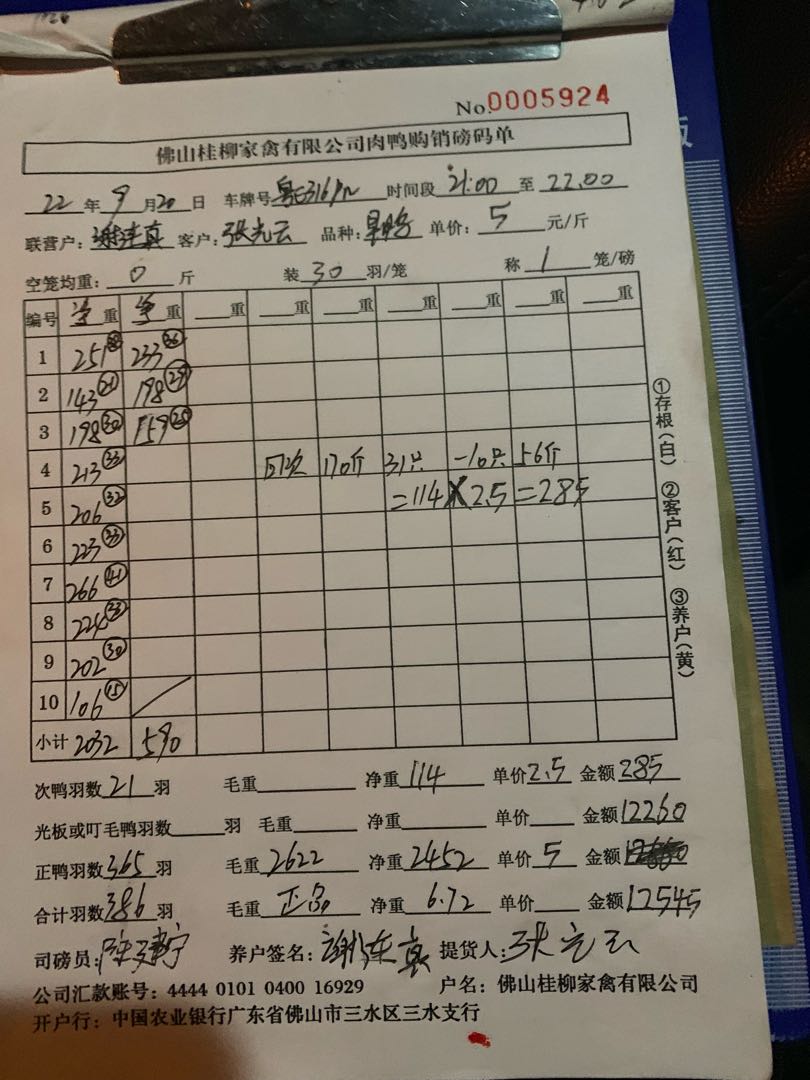 No.0005924
佛山桂柳家禽有限公司肉鸭购销磅码单
22 年 9 月 20 日 车牌号 时间段 21:00 至 22:00
联营户: 客户: 张光云 品种: 单价: 5 元/斤
空笼均重: 0 斤 装 30 羽/笼 称 1 笼/磅
编号 重 重 重 重 重 重 重 重
1 251 233 26
2 143 21 198 29
3 198 30 159 25
4 213 33 170斤 31只 -10只 56斤
5 206 32 =114 X 2.5 =285
6 223 33
7 266 41
8 224 33
9 202 30
10 106 15
小计 2032 590
①存根(白) ②客户(红) ③养户(黄)
次鸭羽数 21 羽 毛重 净重 114 单价 2.5 金额 285
光板或叮毛鸭羽数 羽 毛重 净重 单价 金额 12260
正鸭羽数 365 羽 毛重 2622 净重 2452 单价 5 金额
合计羽数 386 羽 毛重 正品 净重 6.72 单价 金额 12545
司磅员: 养户签名: 提货人: 张光云
公司汇款账号: 4444 0101 0400 16929 户名: 佛山桂柳家禽有限公司
开户行: 中国农业银行广东省佛山市三水区三水支行